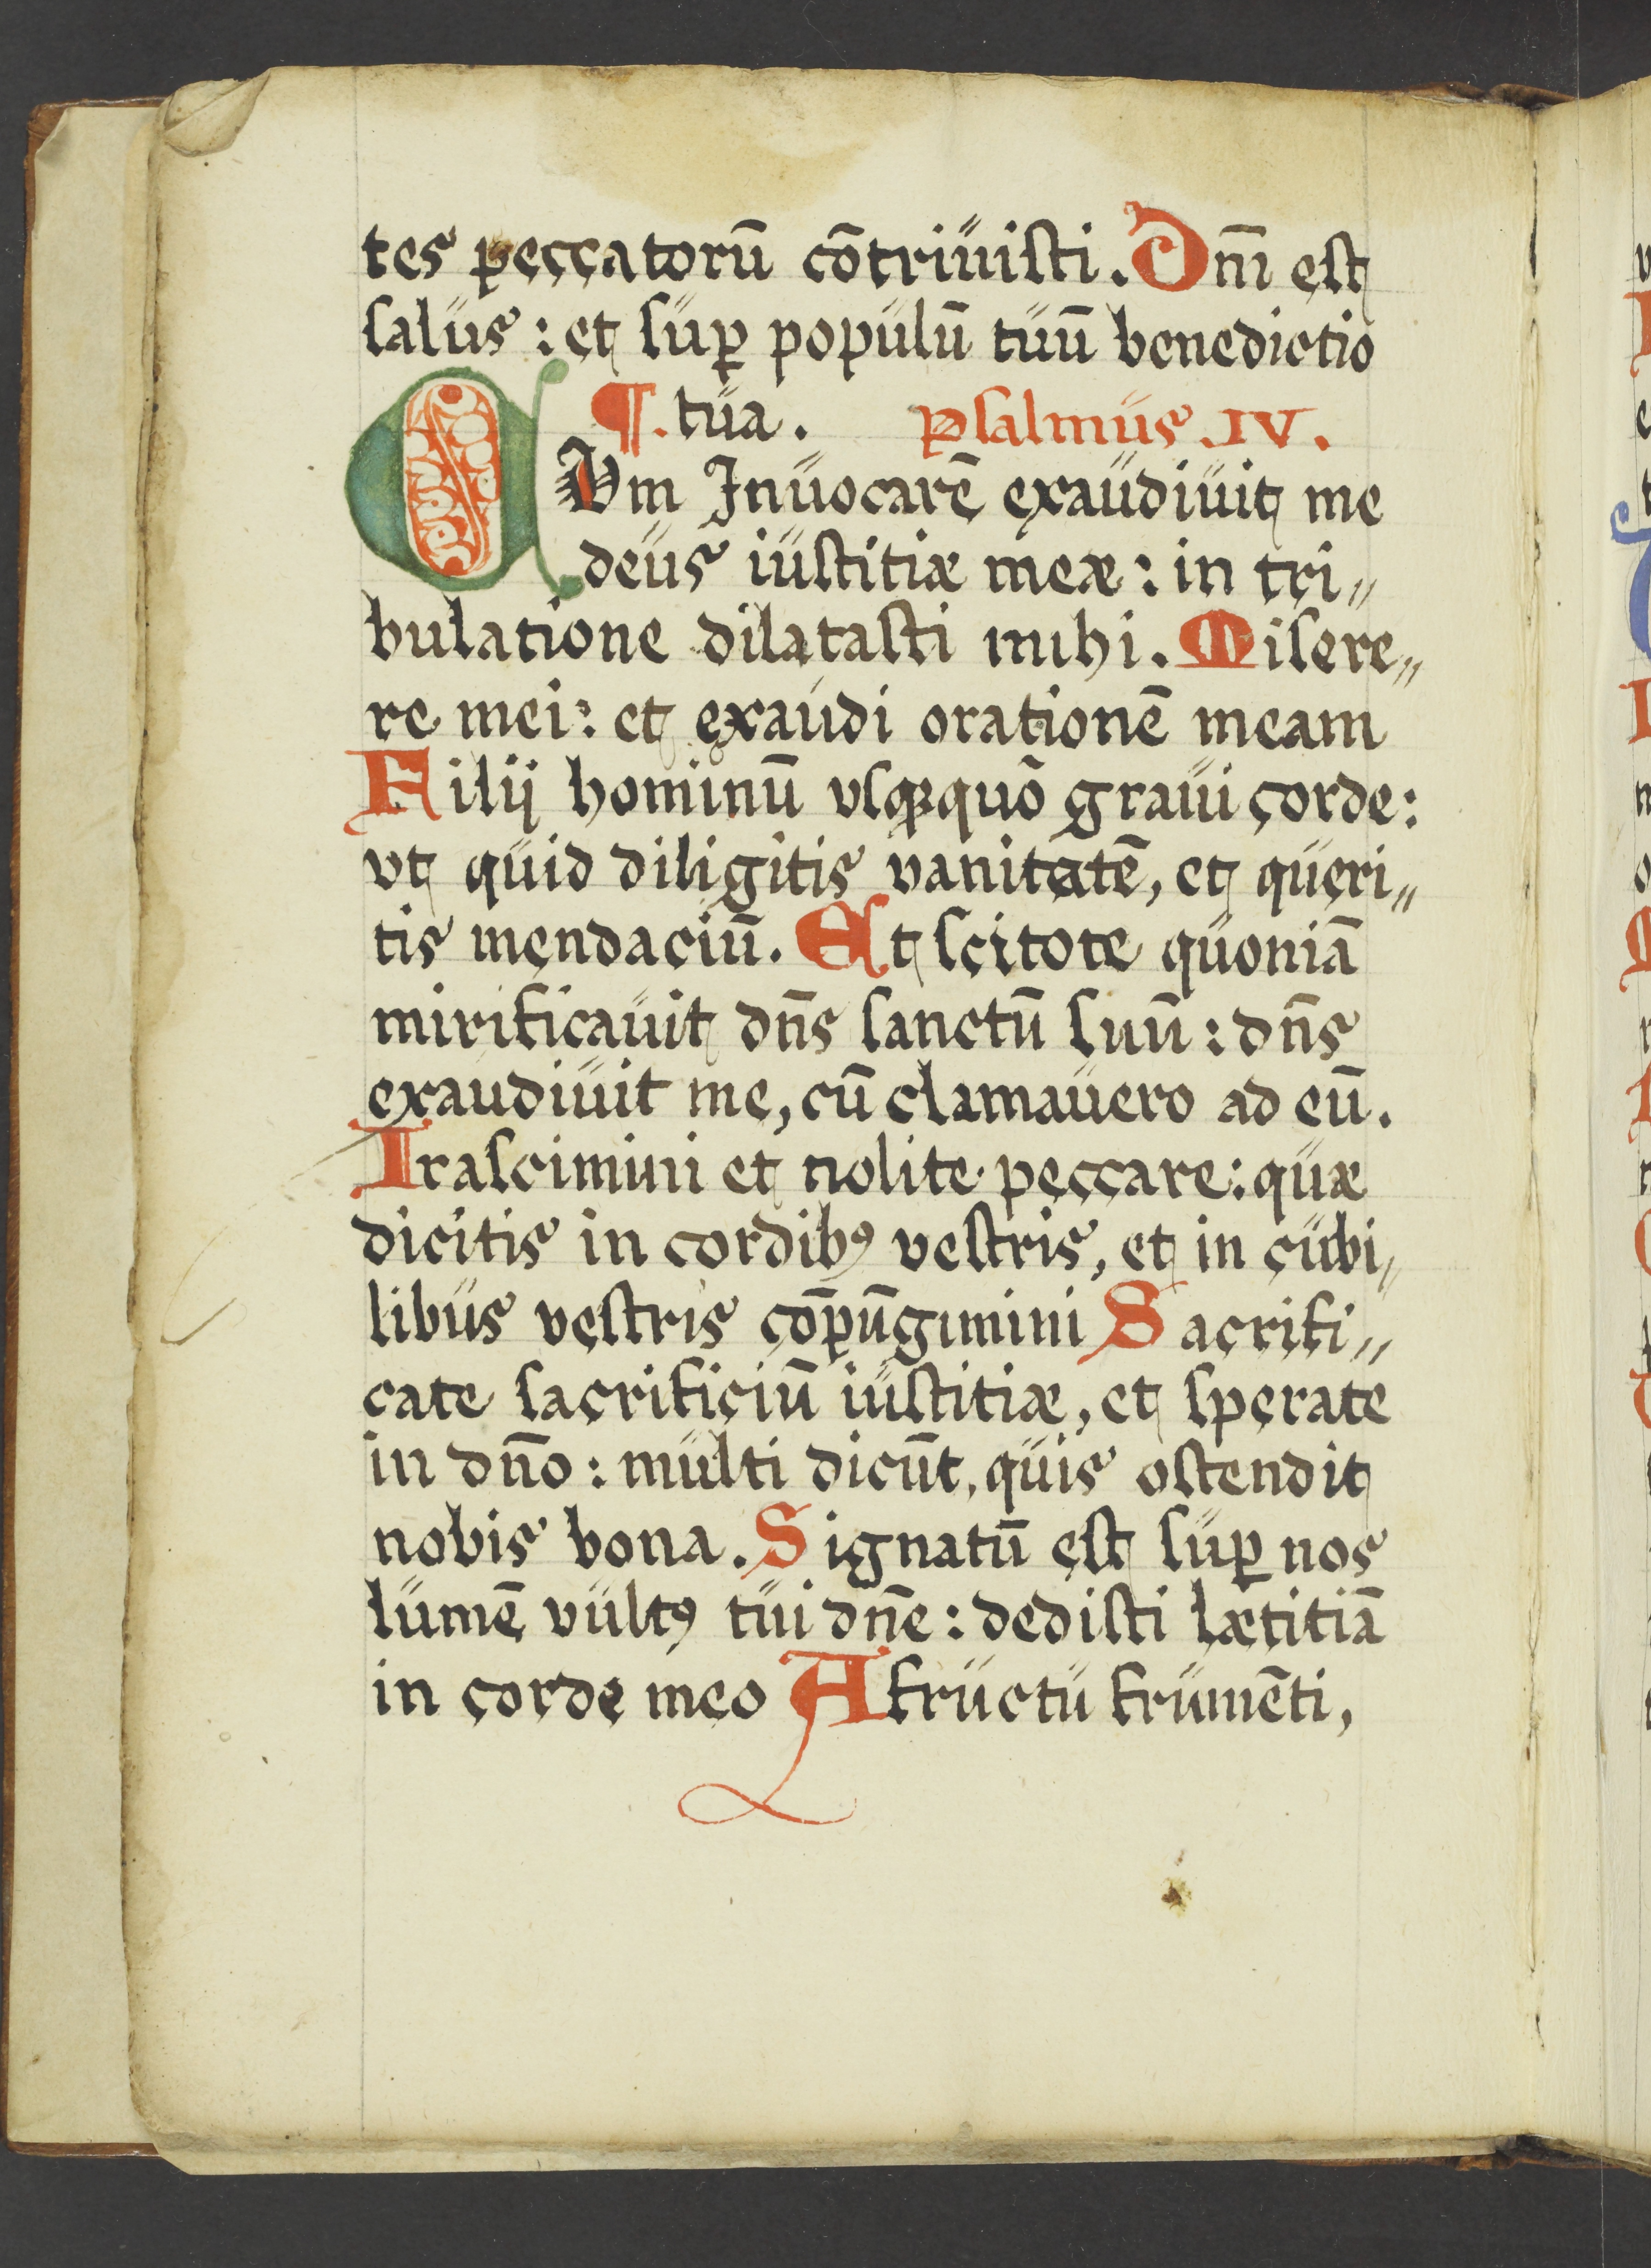 tes peccatorū cōtriuisti. Dnı̄ est
salus: et suꝑ populū tuū benedictio
¶. tua. Psalmus .IV.
CVm Inuocarē exaudiuit me
deus iustitiæ meæ: in tri〃
bulatione dilatasti mihi. Misere〃
re mei: et exaudi orationē meam
Filij hominū vsꝗquō graui corde:
vt quid diligitis vanitatē, et queri〃
tis mendaciū. Et scitote quoniā
mirificauit dn̄s sanctū suū: dn̄s
exaudiuit me, cū clamauero ad eū.
Irascimini et nolite peccare: quæ
dicitis in cordibꝰ vestris, et in cubi〃
libus vestris cōpūgimini Sacrifi〃
cate sacrificiū iustitiæ, et sperate
in dn̄o: multi dicūt, quis ostendit
nobis bona. Signatū est suꝑ nos
lumē vultꝰ tui dn̄e: dedisti lætitiā
in corde meo A fructu frumēti,